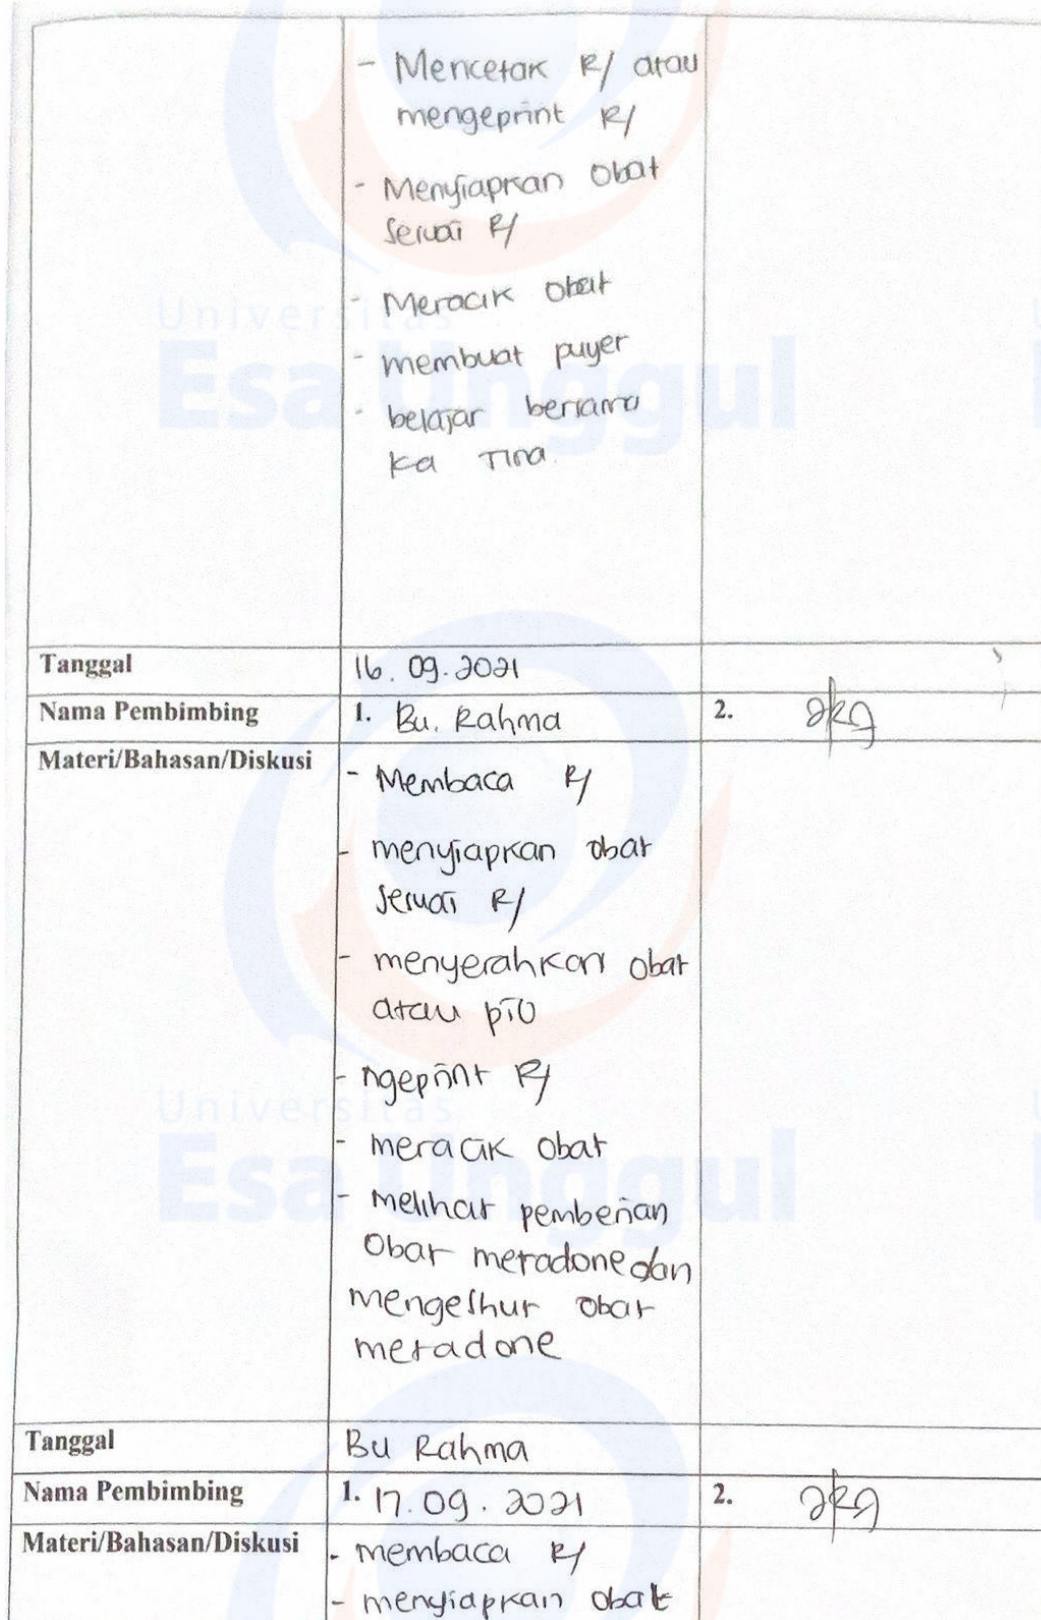 - Mencetak R/ atau
mengeprint R/
- Menyiapkan Obat
Sesuai R/
- Meracik obat
- membuat puyer
- belajar bersama
ka Tina.
Universitas
Esa Unggul
Tanggal 16.09.2021
Nama Pembimbing 1. Bu. Rahma 2.
Materi/Bahasan/Diskusi - Membaca R/
- menyiapkan obat
Sesuai R/
- menyerahkan obat
atau pio
- ngeprint R/
- meracik obat
- Melihat pemberian
Obat metadone dan
mengeshur obat
metadone
Universitas
Esa Unggul
Tanggal Bu Rahma
Nama Pembimbing 1. 17.09.2021 2.
Materi/Bahasan/Diskusi - membaca R/
- menyiapkan obat